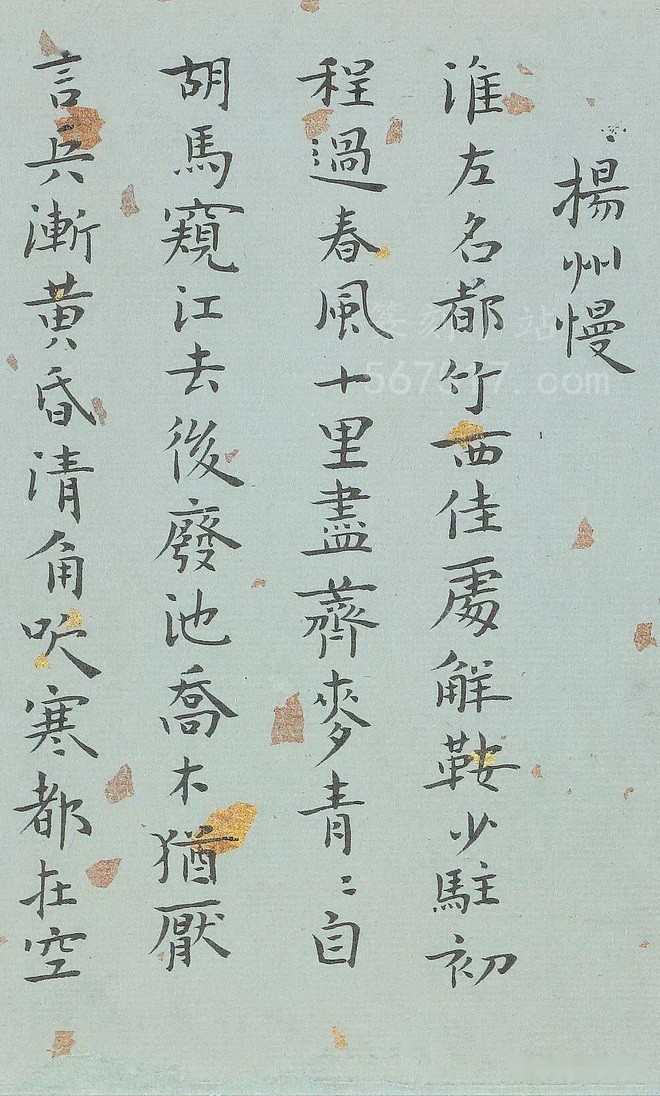 揚州慢
淮左名都竹西佳處解鞍少駐初
程過春風十里盡薺麥青〻自
胡馬窺江去後廢池喬木猶厭
言兵漸黄昏清角吹寒都在空
567 com